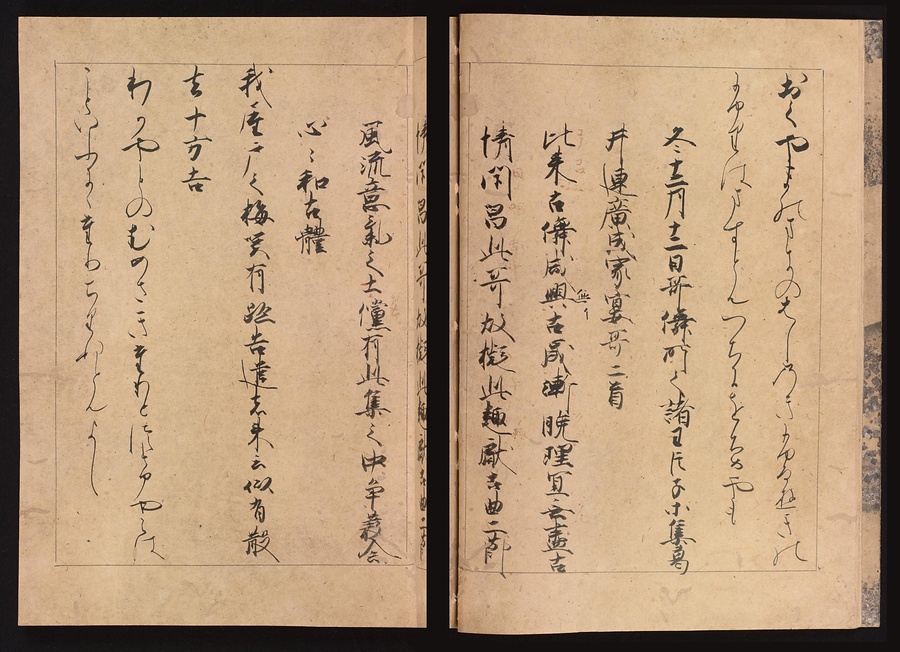 おくやまのまきのはしのきふるゆきの
ふりはますともつちにおちめやも
冬十二月十二日哥儛所之諸王臣子等集葛
井連廣成家宴哥二首
比来古儛盛興古歳漸晩理宜共盡古
情同唱此哥故擬此趣獻古曲二節
風流意氣之士儻有此集之中争發念
心〻和古體
我屋戸之梅咲有跡告遣者来云似有散
去十方吉
わかやとのむめさきたりとつけやらは
こてふににたりちりぬともよし